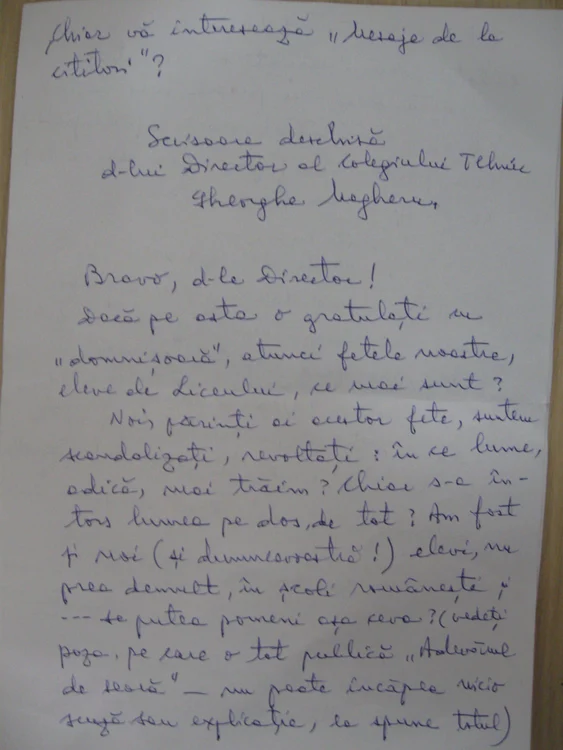 Chiar vă interesează „Mesaje de la
cititori"?
Scrisoare deschisă
d-lui Director al Colegiului Tehnic
Gheorghe Magheru,
Bravo, d-le Director!
Dacă pe asta o gratulați cu
„domnișoară", atunci fetele noastre,
eleve de Liceului, ce mai sunt?
Noi, părinți ai acestor fete, suntem
scandalizați, revoltați: în ce lume,
adică, mai trăim? Chiar s-a în-
tors lumea pe dos, de tot? Am fost
și noi (și dumneavoastră!) elevi, nu
prea demult, în școli românești;
--- se putea pomeni așa ceva? (vedeți
poza, pe care o tot publică „Adevărul
de seară" — nu poate încăpea nicio
scuză sau explicație, ea spune totul)